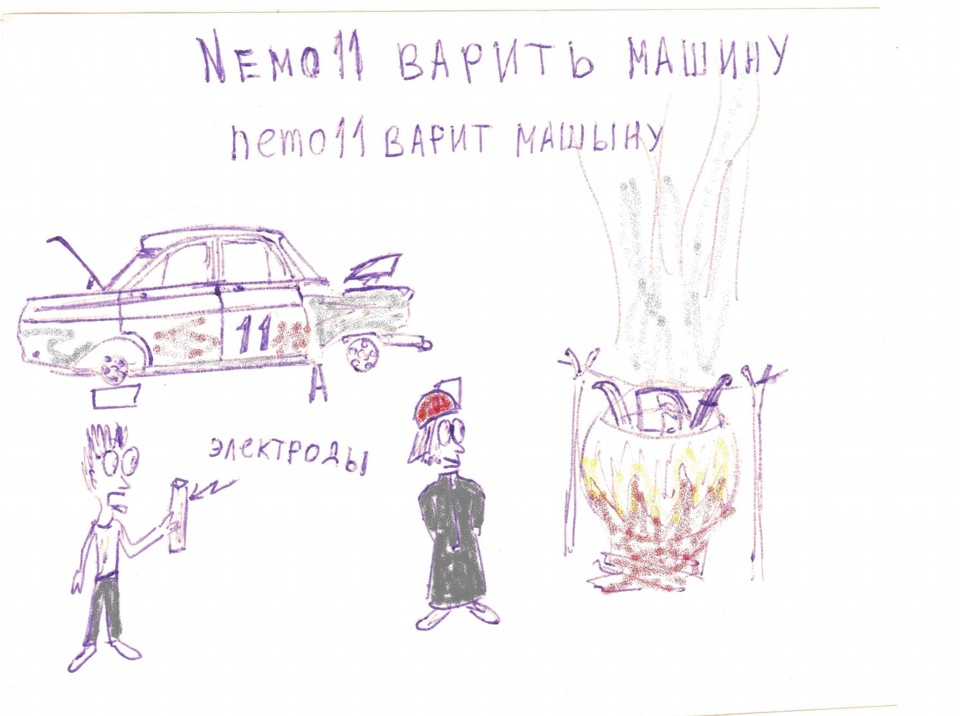 Nемо11 ВАРИТЬ МАШИНУ
nemo11 ВАРИТ МАШЫНУ
11
ЭЛЕКТРОДЫ